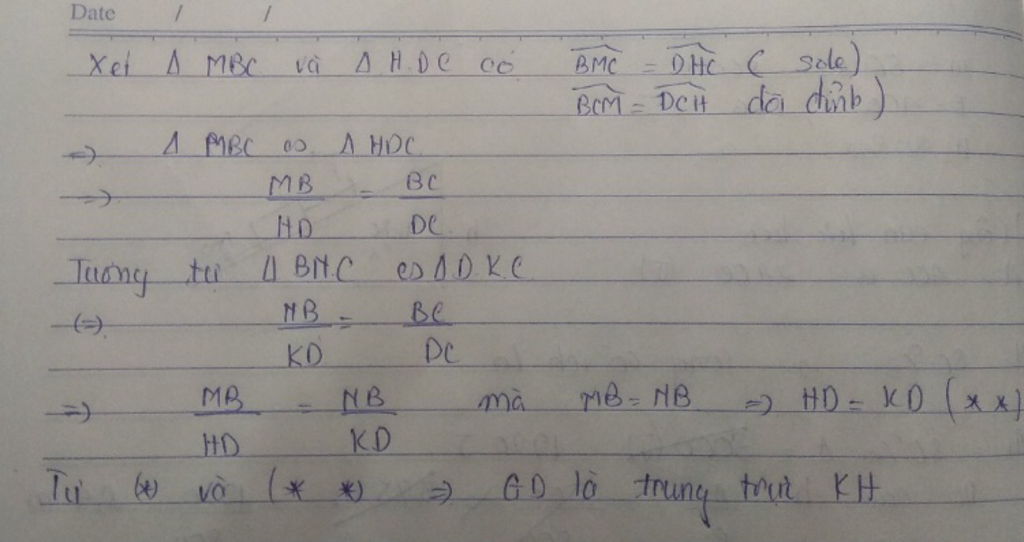 Date / /
Xét Δ MBC và Δ HDC có BMC = DHC ( sole)
BCM = DCH đối đỉnh )
=> Δ MBC ∽ Δ HDC
=> MB/HD = BC/DC
Tương tự Δ BNC ∽ Δ DKC
(=) NB/KD = BC/DC
=> MB/HD = NB/KD mà MB = NB => HD = KD (* *)
Từ (*) và (* *) => GD là trung trực KH